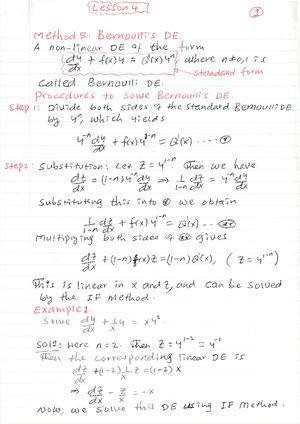 Lesson 4
1
Method 5: Bernoulli's DE.
A non-linear DE of the form
dy/dx + f(x)y = Q(x)yⁿ, where n≠0,1 is
standard form
called Bernoulli DE.
Procedures to solve Bernoulli's DE.
Step 1: Divide both sides of the standard Bernoulli DE
by yⁿ, which yields
y⁻ⁿ dy/dx + f(x)y¹⁻ⁿ = Q(x) .... *
Step 2: Substitution: Let Z = y¹⁻ⁿ. Then we have
dz/dx = (1-n)y⁻ⁿ dy/dx ⇒ 1/(1-n) dz/dx = y⁻ⁿ dy/dx
Substituting this into * we obtain
1/(1-n) dz/dx + f(x)y¹⁻ⁿ = Q(x) ... **
Multiplying both sides of ** gives
dz/dx + (1-n)f(x)z = (1-n)Q(x), ( Z = y¹⁻ⁿ )
This is linear in x and z, and can be solved
by the IF method.
Example 1.
Solve dy/dx + 1/x y = xy².
Solⁿ: Here n = 2. Then Z = y¹⁻² = y⁻¹
Then the corresponding linear DE is
dz/dx + (1-2) 1/x z = (1-2) x
⇒ dz/dx - z/x = -x
Now, we solve this DE using IF method.